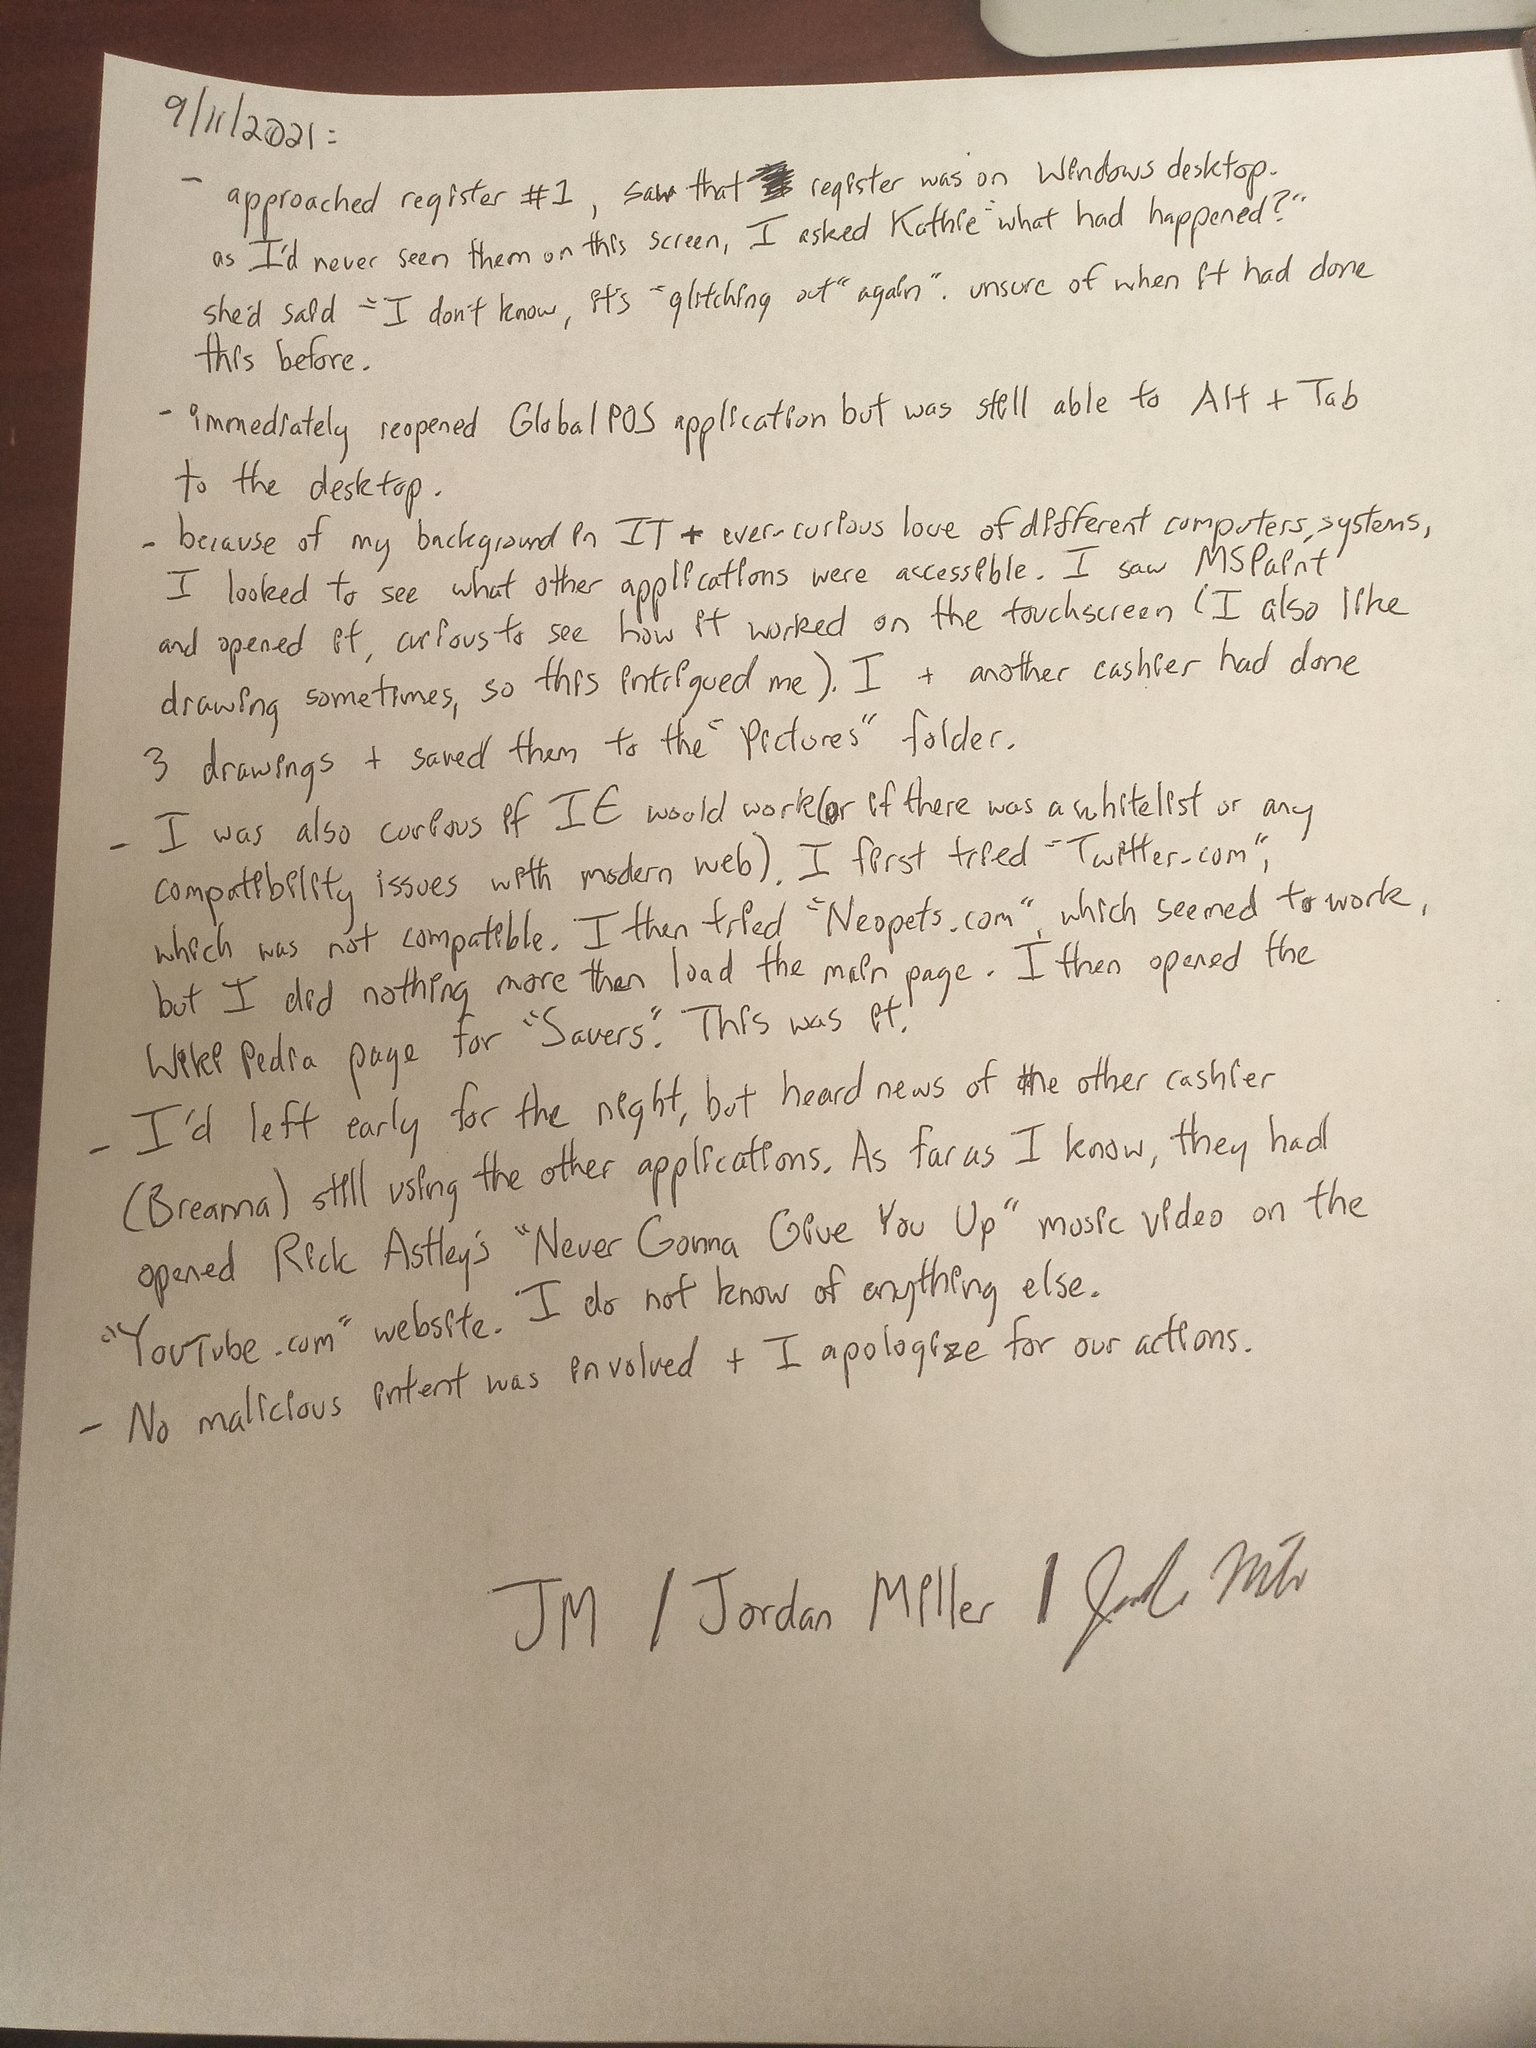 9/11/2021:
- approached register #1, saw that register was on Windows desktop.
as I'd never seen them on this screen, I asked Kathie "what had happened?"
she'd said "I don't know, it's "glitching out" again". unsure of when it had done
this before.
- immediately reopened GlobalPOS application but was still able to Alt + Tab
to the desktop.
- because of my background in IT + ever-curious love of different computers, systems,
I looked to see what other applications were accessible. I saw MSPaint
and opened it, curious to see how it worked on the touchscreen (I also like
drawing sometimes, so this intrigued me). I + another cashier had done
3 drawings + saved them to the "Pictures" folder.
- I was also curious if IE would work (or if there was a whitelist or any
compatibility issues with modern web). I first tried "Twitter.com",
which was not compatible. I then tried "Neopets.com", which seemed to work,
but I did nothing more then load the main page. I then opened the
WikiPedia page for "Savers". This was it.
- I'd left early for the night, but heard news of the other cashier
(Breanna) still using the other applications. As far as I know, they had
opened Rick Astley's "Never Gonna Give You Up" music video on the
"YouTube.com" website. I do not know of anything else.
- No malicious intent was involved + I apologize for our actions.
JM / Jordan Miller /